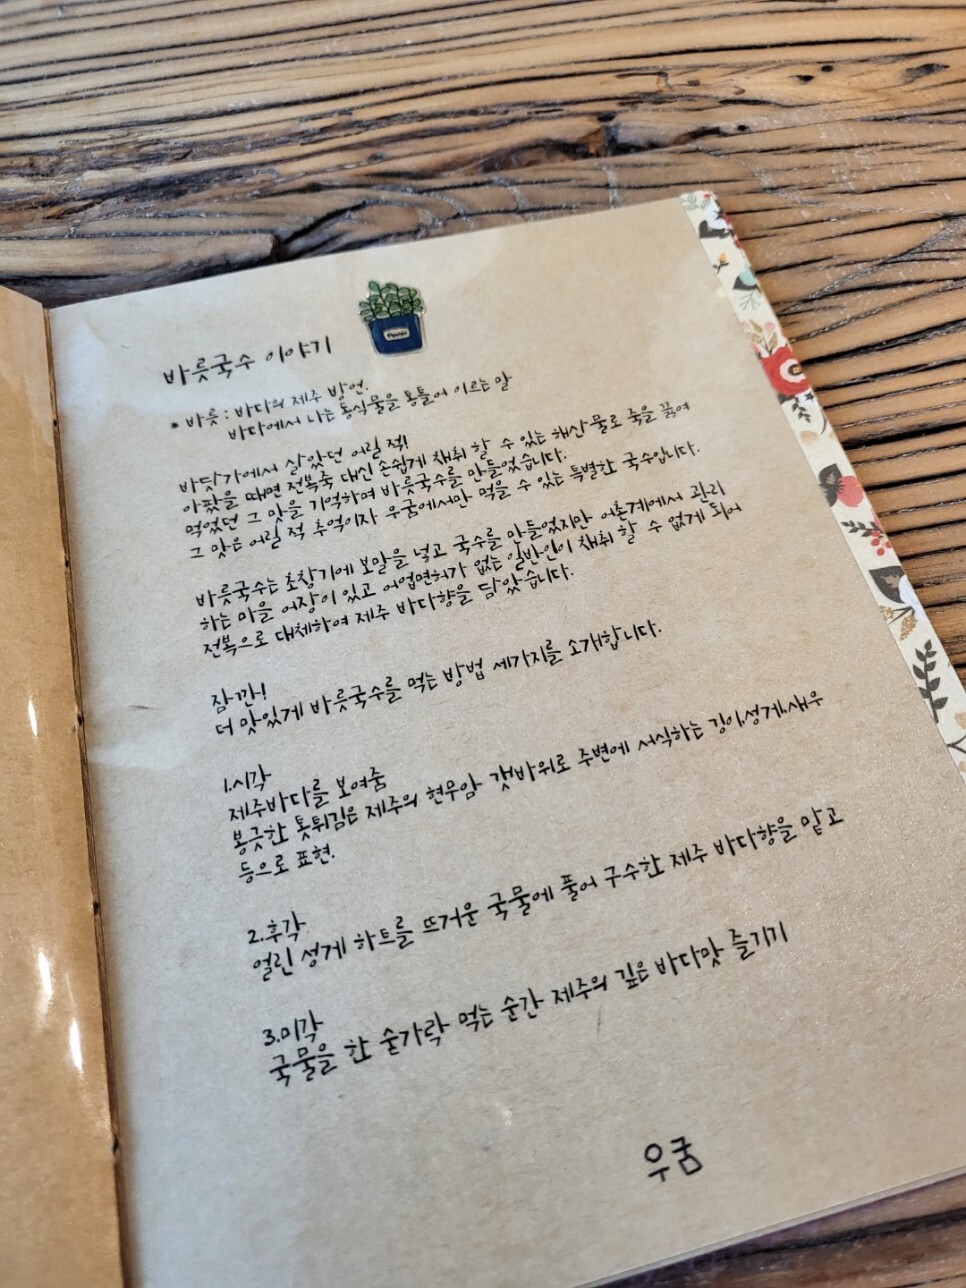 바릇국수 이야기
* 바릇 : 바다의 제주 방언.
바다에서 나는 동식물을 통틀어 이르는 말
바닷가에서 살았던 어릴 적!
아팠을 때면 전복죽 대신 손쉽게 채취 할 수 있는 해산물로 죽을 끓여
먹었던 그 맛을 기억하며 바릇국수를 만들었습니다.
그 맛은 어릴 적 추억이자 우굼에서만 먹을 수 있는 특별한 국수입니다.
바릇국수는 초창기에 보말을 넣고 국수를 만들었지만 어촌계에서 관리
하는 마을 어장이 있고 어업면허가 없는 일반인이 채취 할 수 없게 되어
전복으로 대체하여 제주 바다향을 담았습니다.
잠깐!
더 맛있게 바릇국수를 먹는 방법 세가지를 소개합니다.
1.시각
제주바다를 보여줌
봉긋한 톳튀김은 제주의 현무암 갯바위로 주변에 서식하는 깅이성게새우
등으로 표현.
2.후각
얼린 성게 하트를 뜨거운 국물에 풀어 구수한 제주 바다향을 맡고
3.미각
국물을 한 숟가락 먹는 순간 제주의 깊은 바다맛 즐기기
우굼